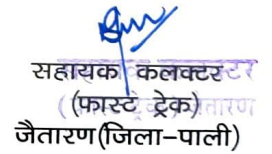 सहायक कलक्टर
(फास्ट ट्रेक)
जैतारण(जिला-पाली)